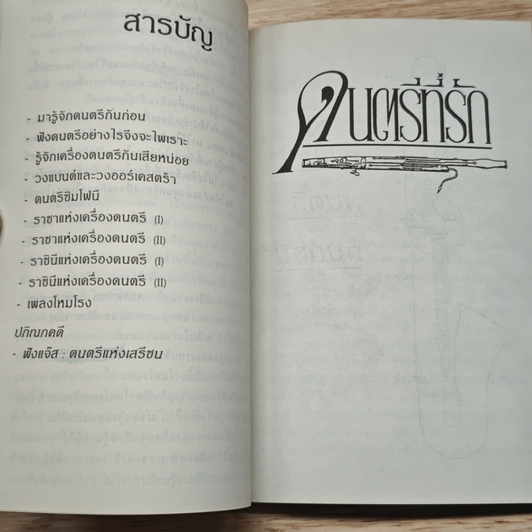 สารบัญ
- มารู้จักดนตรีกันก่อน
- ฟังดนตรีอย่างไรจึงจะไพเราะ
- รู้จักเครื่องดนตรีกันเสียหน่อย
- วงแบนด์และวงออร์เคสตร้า
- ดนตรีซิมโฟนี
- ราชาแห่งเครื่องดนตรี (I)
- ราชาแห่งเครื่องดนตรี (II)
- ราชินีแห่งเครื่องดนตรี (I)
- ราชินีแห่งเครื่องดนตรี (II)
- เพลงโหมโรง
ปกิณกคดี
- ฟังแจ๊ส : ดนตรีแห่งเสรีชน
ดนตรีที่รัก